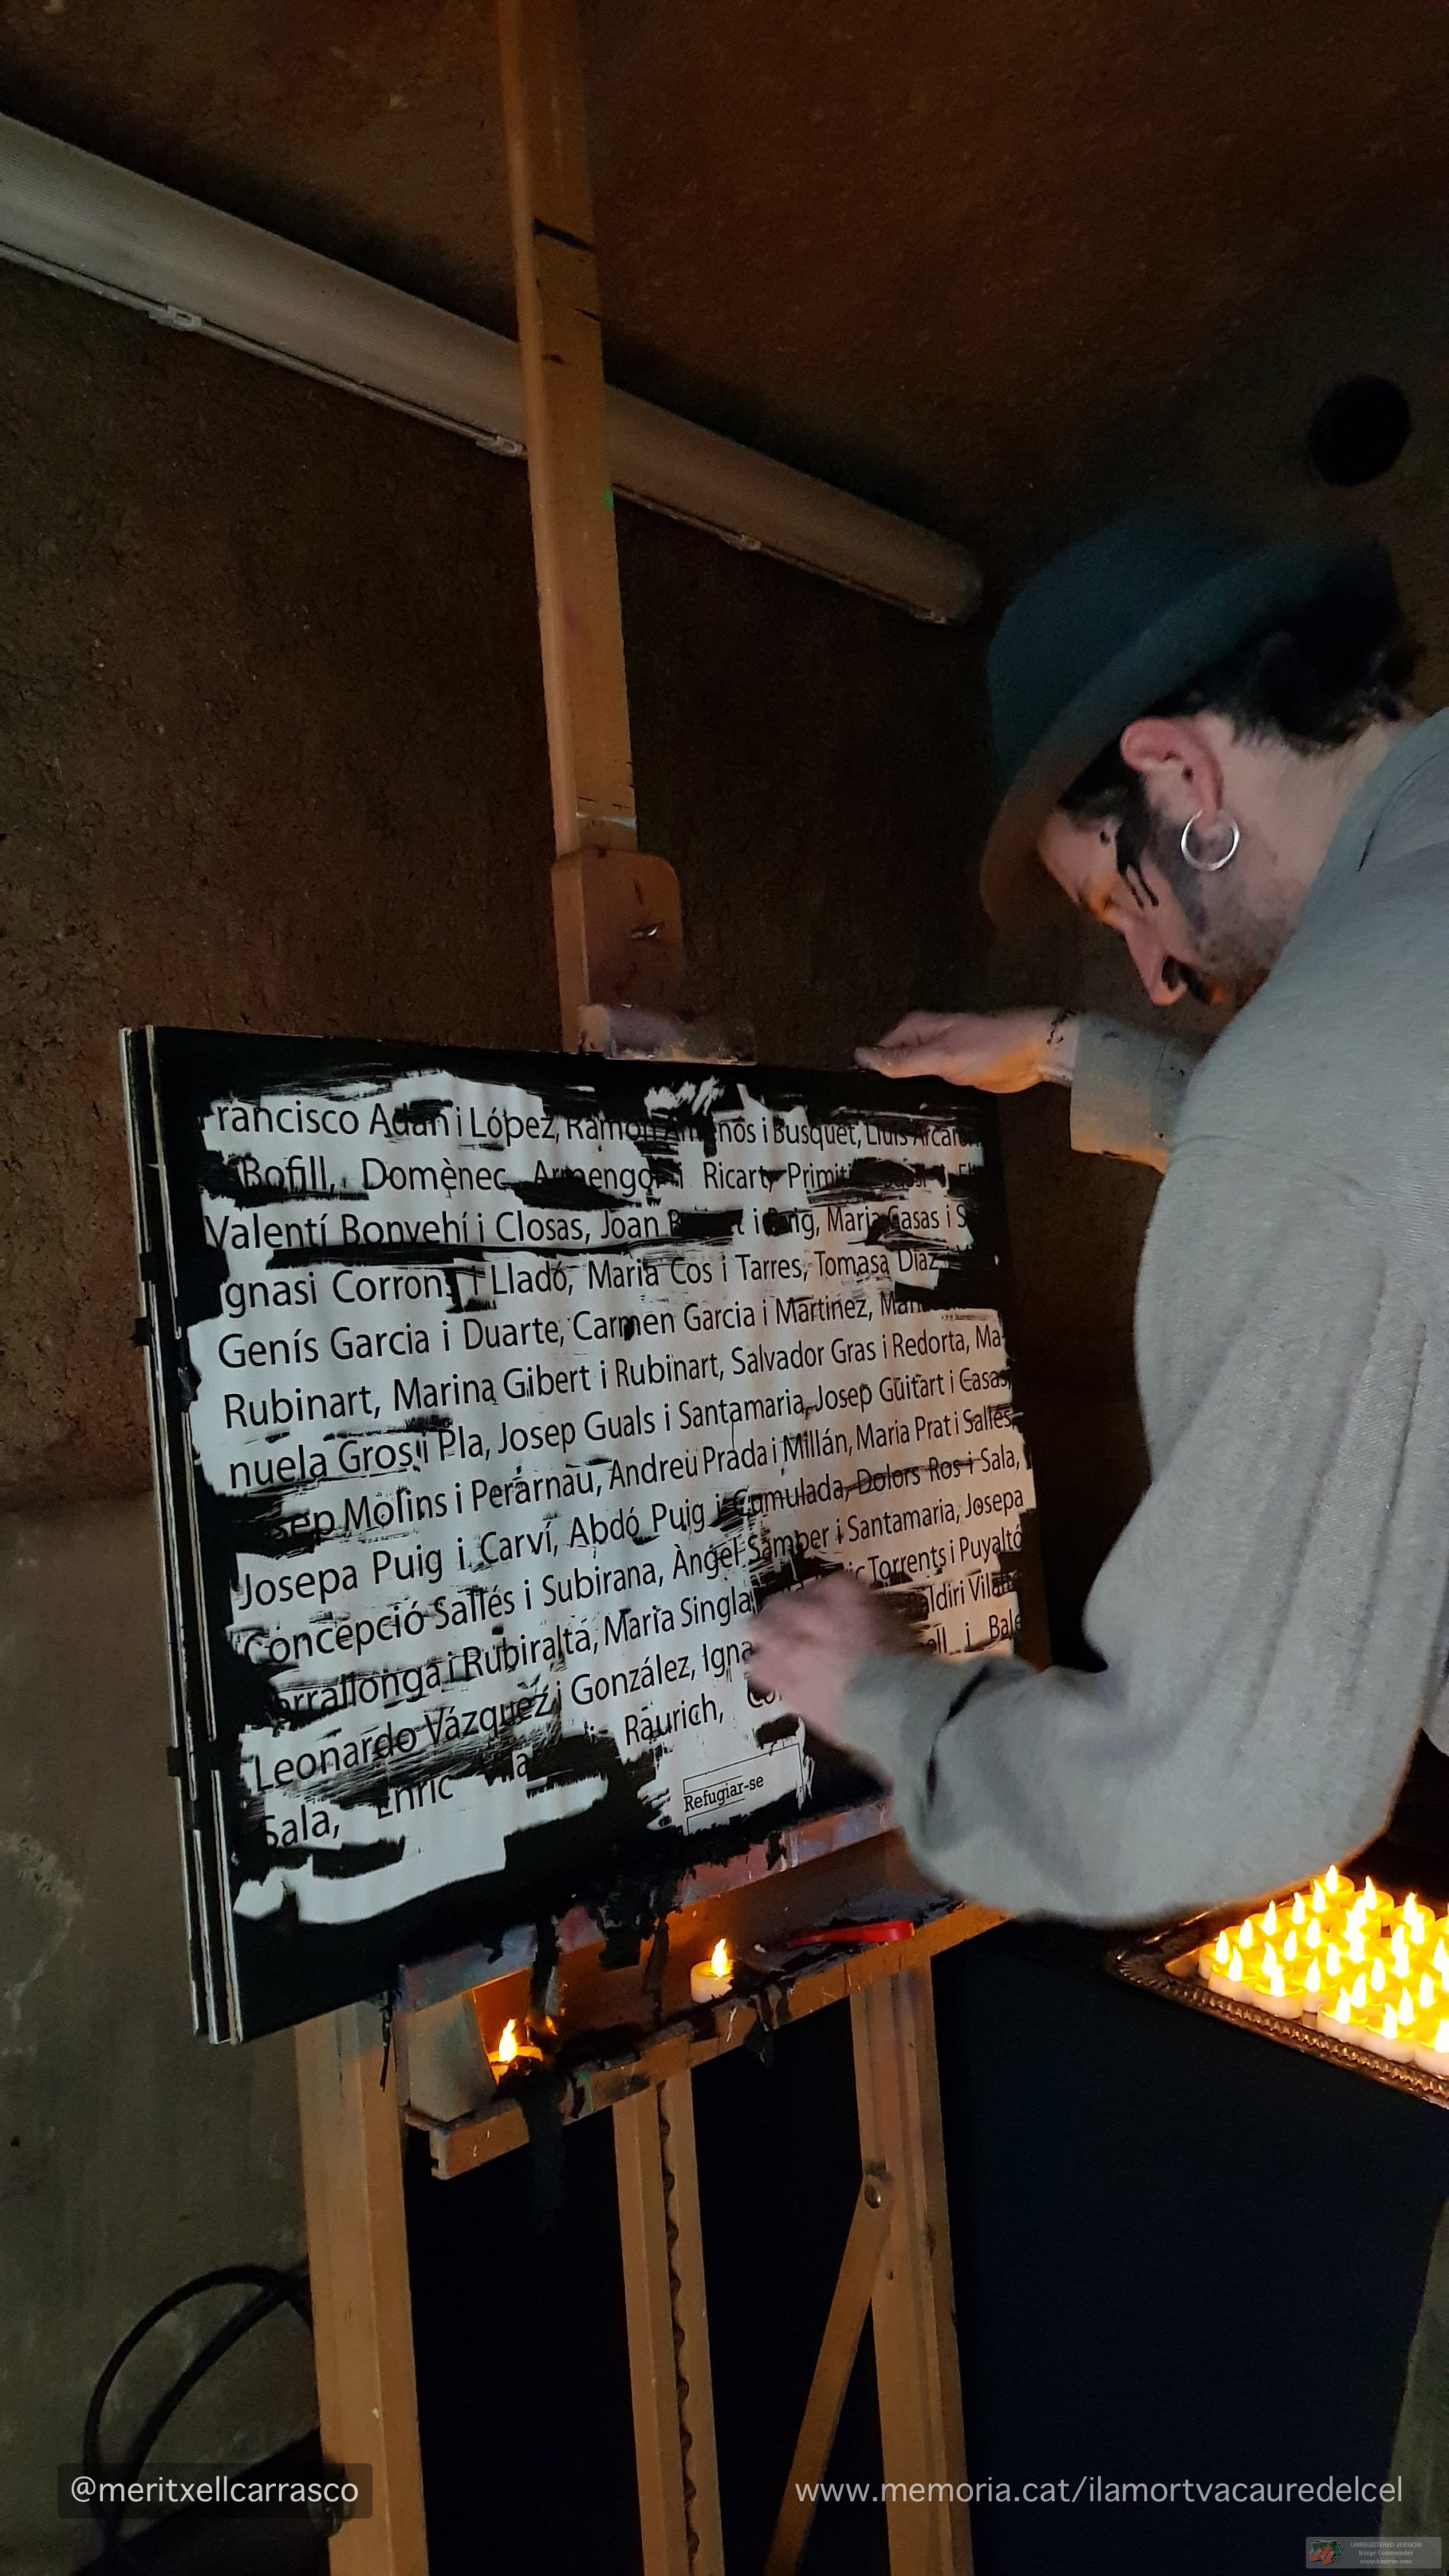 rancisco Adan i López, Ramon nós i Busquet, Lluís Arcaro
Bofill, Domènec Armengol i Ricart, Primiti
Valentí Bonvehí i Closas, Joan i Puig, Maria Casas i S
gnasi Corrons i Lladó, Maria Cos i Tarres, Tomasa Díaz
Genís Garcia i Duarte, Carmen Garcia i Martinez, Man
Rubinart, Marina Gibert i Rubinart, Salvador Gras i Redorta, Ma-
nuela Gros i Pla, Josep Guals i Santamaria, Josep Guitart i Casas,
sep Molins i Perarnau, Andreu Prada i Millán, Maria Prat i Sallés,
Josepa Puig i Carví, Abdó Puig i Cumulada, Dolors Ros i Sala,
Concepció Sallés i Subirana, Àngel Samper i Santamaria, Josepa
rrallonga i Rubiralta, Maria Singla ic Torrents i Puyaltó
Leonardo Vázquez i González, Igna aldiri Vila
Sala, Enric Vila i Raurich, Co ell i Bale
Refugiar-se
@meritxellcarrasco
www.memoria.cat/ilamortvacauredelcel
UNREGISTERED VERSION
Image Commander